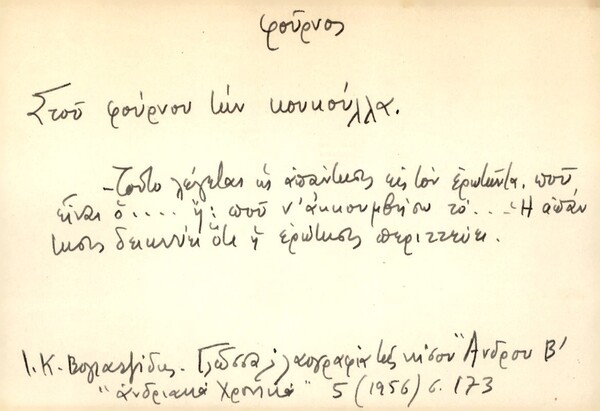 φοῦρνος
Στοῦ φούρνου τὴν κουκούλλα.
-Τοῦτο λέγεται ὡς ἀπάντησις εἰς τὸν ἐρωτῶντα, ποῦ
εἶναι ὁ.... ἤ: ποῦ ν' ἀκκουμβήσω τό... Ἡ ἀπάν
τησις δεικνύει ὅτι ἡ ἐρώτησις περιττεύει.
Ι. Κ. Βογιατζίδης. Γλῶσσα κ λαογραφία τῆς νήσου Ἄνδρου Β'
"Ἀνδριακά Χρονικά" 5 (1956) σ. 173